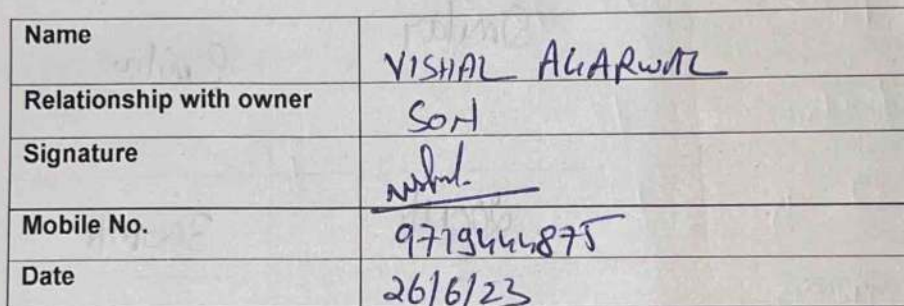 Name VISHAL AGARWAL
Relationship with owner SON
Signature
Mobile No. 9719444875
Date 26/6/23